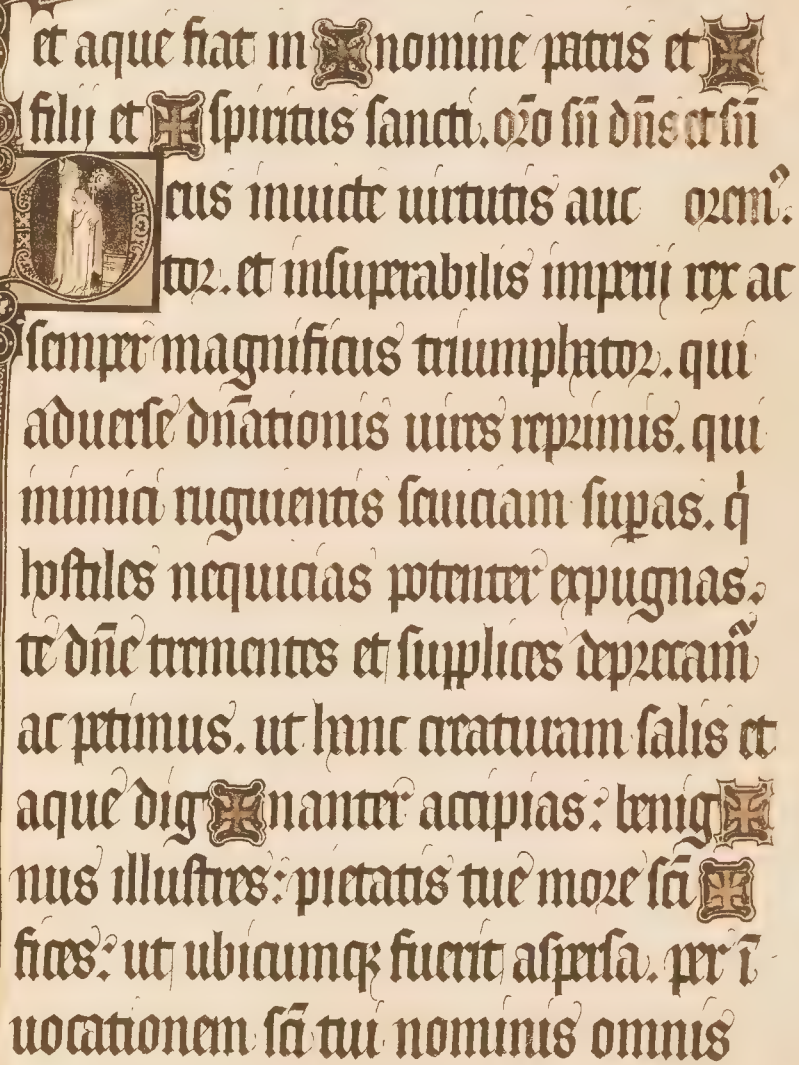 et aque fiat in ✠ nomine patris et ✠
filii et ✠ spiritus sancti. or̄o sn̄ dn̄s et sn̄
Deus inuicte uirtutis auc orem⁹.
tor. et insuperabilis imperii rex ac
semper magnificus triumphator. qui
aduerse dn̄ationis uires reprimis. qui
inimici rugientis seuiciam suꝑas. qⁱ
hostiles nequicias potenter expugnas.
te dn̄e trementes et supplices deprecam̄
ac petimus. ut hanc creaturam salis et
aque dig ✠ nanter accipias: benig ✠
nus illustres: pietatis tue more sc̄i ✠
fices: ut ubicumqꝫ fuerit aspersa. per ī
uocationem sc̄i tui nominis omnis